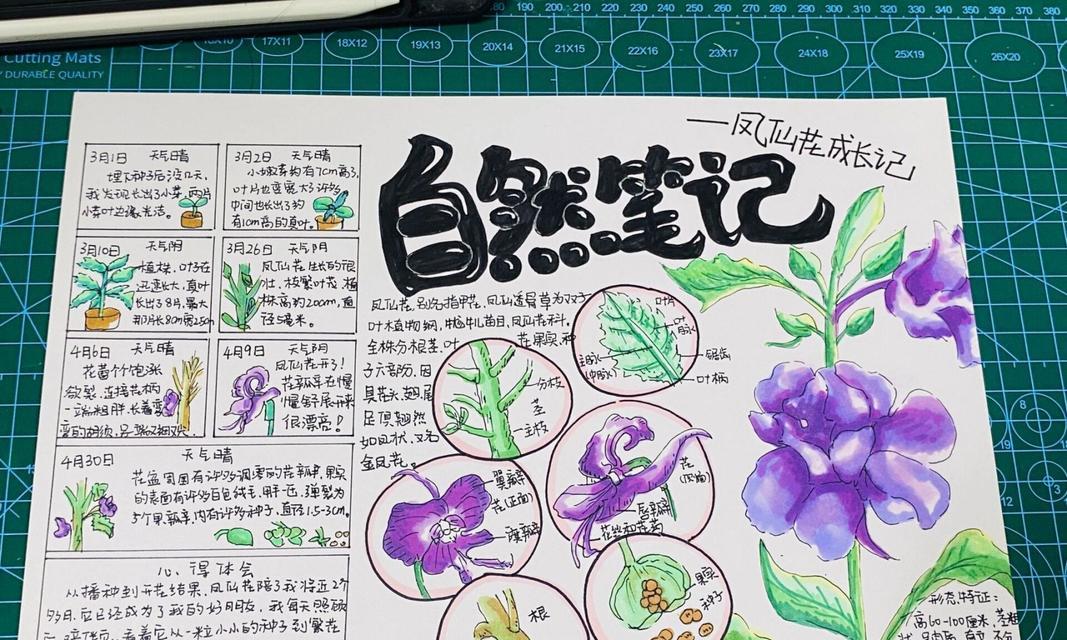 Cutting Mats
DURABLE QUALITY
190 200 210 220 230 240 250 260 270 280 290 300 310 320 330 340 350 360 370 380
17X11
18X12
19X13
20X14
21X15
22X16
23X17
24X18
25X19
26X20
自然笔记
—凤仙花成长记
3月1日 天气晴
埋下种子后没几天,
我发现长出了小芽,两片
小芽叶边缘光洁。
3月2日 天气晴
叶片也变宽大了许多
中间也长出了约
有1cm高的真叶。
3月10日 天气阴
植株,叶子在
迅速长大,真叶
长出了8片,最大
那片长8cm宽2.5cm
3月26日 天气阴
凤仙花生长的很
壮,枝繁叶茂,植
株高约20cm,直
径5毫米。
4月6日 天气晴
花蕾个个饱涨
欲裂,连接花柄
一端粗胖,长着弯
弯的胡须,另一端又细又尖
4月9日 天气阴
凤仙花开了!
花瓣正在慢
慢舒展开来
很漂亮!
4月30日 天气晴
花盆周围有许多凋零的花瓣,果实
的表面有许多白色绒毛,用手一压,弹裂为
5个果瓣,内有许多种子,直径1.5-3cm。
心得体会
从播种到开花结果,凤仙花陪了我将近2个
多月,它已经成为了我的好朋友,我每天照顾
看着它从一粒小小的种子到繁花
凤仙花,别名指甲花,凤仙透骨草为双子
叶植物纲,牻牛儿苗目,凤仙花科。
全株分根、茎、叶
花、果实、种
子六部分,因
其花头、翅、尾
足俱翘然
如凤状,又名
金凤花。
叶片
叶脉
主脉
(中脉)
锯齿
叶柄
分枝
茎
主枝
花
(侧面)
唇瓣
翼瓣
花(正面)
旗瓣
根
果实
种子
形态特征:
高60-100厘米,茎粗